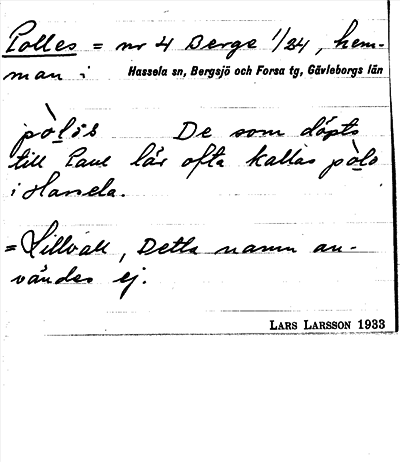 Polles = nr 4 Berge 1/24, hem-
man i Hassela sn, Bergsjö och Forsa tg, Gävleborgs län
De som döpts
till Paul lär ofta kallas pòlo
i Hassela.
= Lillvall, Detta namn an-
vändes ej.
LARS LARSSON 1933